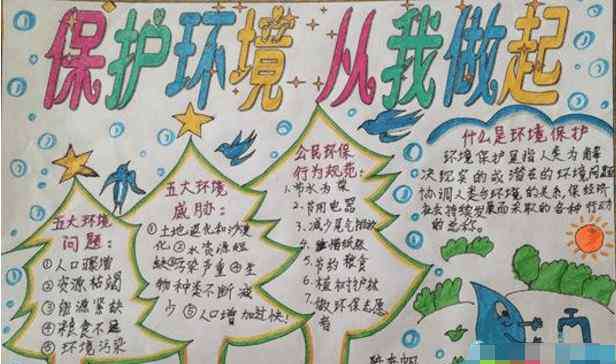 保护环境 从我做起
五大环境
问题:
①人口骤增
②资源枯竭
③能源紧缺
④粮食不足
⑤环境污染
五大环境
威胁:
①土地退化和沙漠
化②水资源短
缺③污染严重④生
物种类不断减
少⑤人口增加过快!
公民环保
行为规范:
1.节水为荣
2.节用电器
3.减少尾气排放
5.节约粮食
6.植树护林
7.做环保志愿
者
什么是环境保护
环境保护是指人类为解
决现实的或潜在的环境问题
协调人类与环境的关系,保经济
社会持续发展而采取的各种行动
的总称。